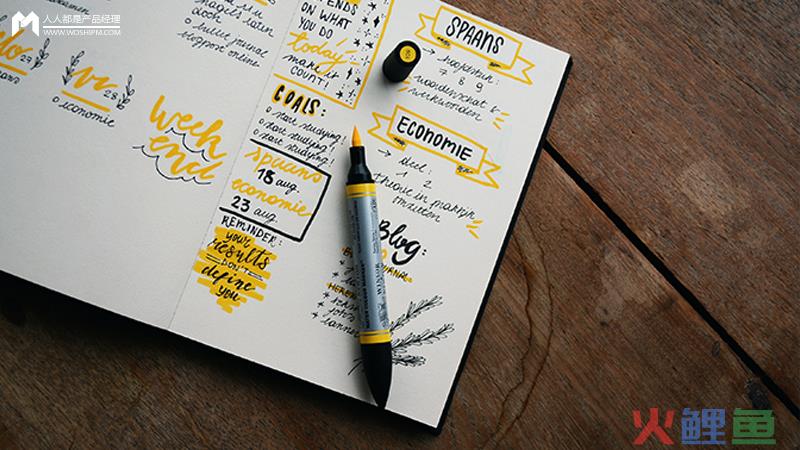 人人都是产品经理
WWW.WOSHIPM.COM
support online
28
economie
week
end
ON WHAT
YOU DO!
today
make it
COUNT!
GOALS:
start studying!
start studying!
start studying!
spaans
18 aug.
economie
23 aug.
REMINDER:
your
results
DON'T
define
you
SPAANS
hoofdstuk:
7 8 9
woordenschat &
werkwoorden
ECONOMIE
deel:
1 2
theorie in
omzetten
Blog:
火鲤鱼